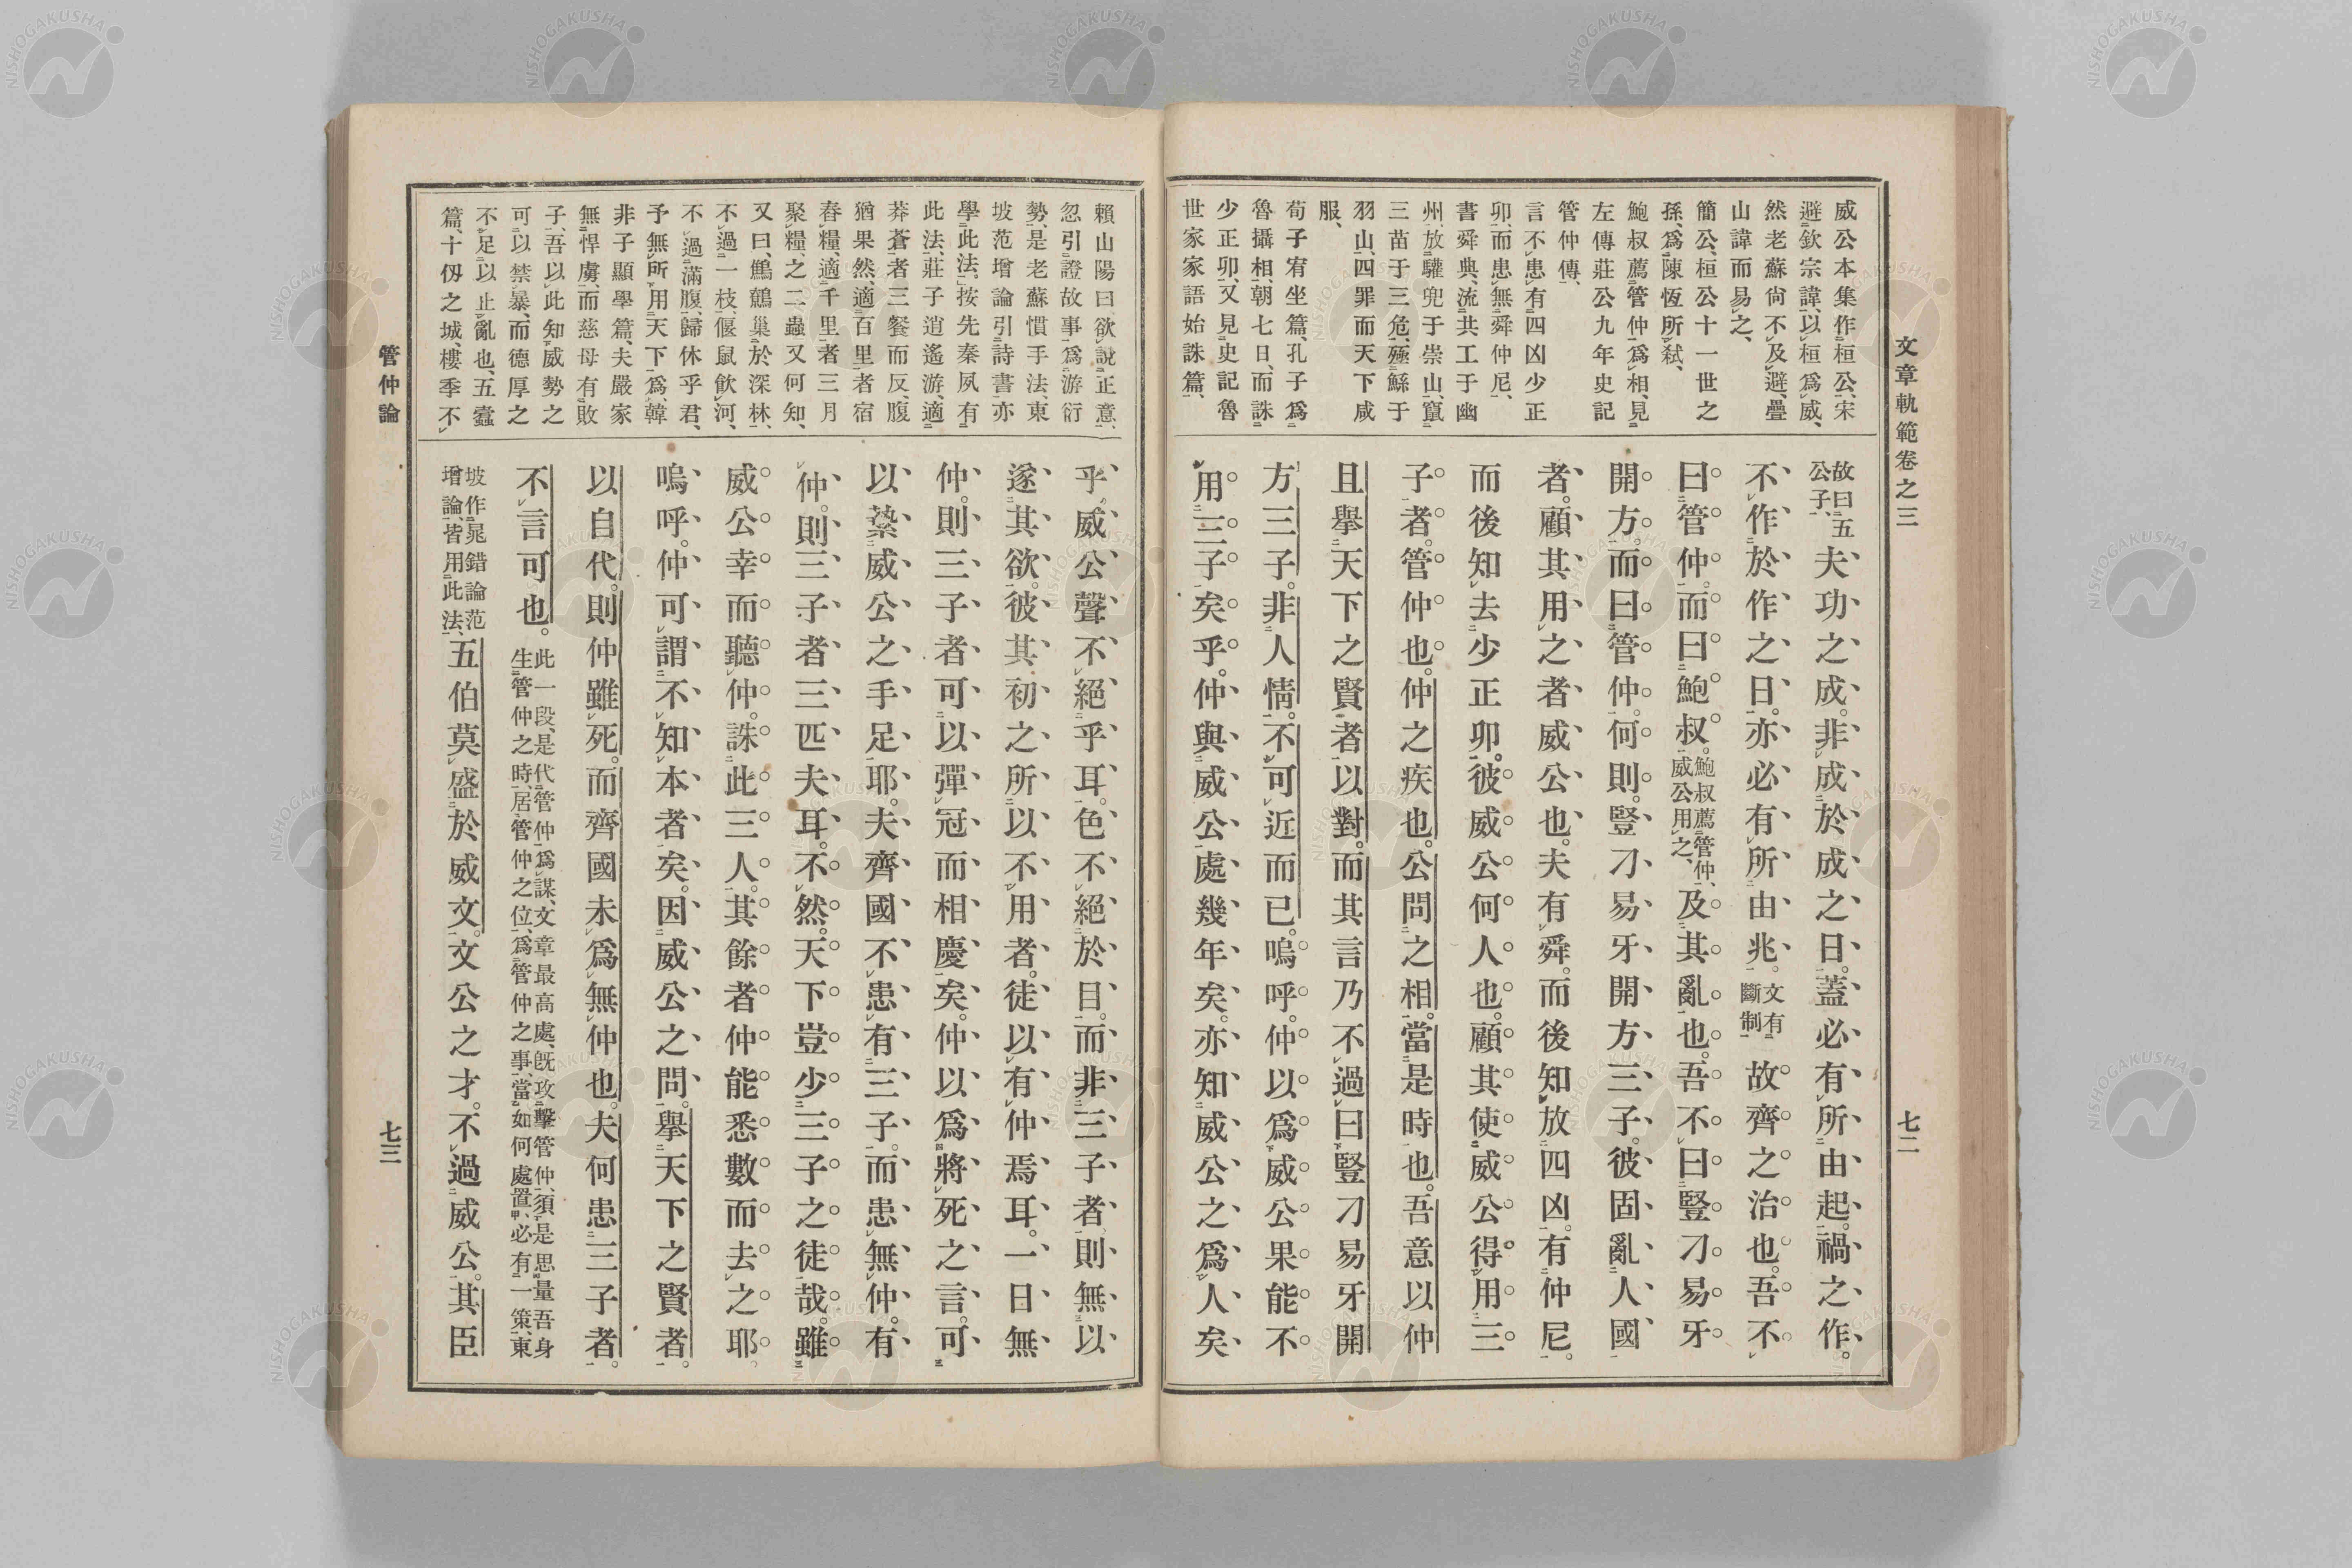 文章軌範卷之三
七二
威公本集作桓公、宋
避欽宗諱、以桓爲威、
然老蘇尙不及避、疊
山諱而易之、
簡公、桓公十一世之
孫、爲陳恆所弒、
鮑叔薦管仲爲相、見
左傳莊公九年史記
管仲傳、
言不患有四凶少正
卯、而患無舜仲尼、
書舜典、流共工于幽
州、放驩兜于崇山、竄
三苗于三危、殛鯀于
羽山、四罪而天下咸
服、
荀子宥坐篇、孔子爲
魯攝相、朝七日、而誅
少正卯、又見史記魯
世家家語始誅篇、
故曰五
公子、
夫功之成。非成於成之日。蓋必有所由起。禍之作。
不作於作之日。亦必有所由兆。
文有
斷制
故齊之治也。吾不
曰管仲。而曰鮑叔。
鮑叔薦管仲、
威公用之、
及其亂也。吾不曰豎刁易牙
開方。而曰管仲。何則。豎刁易牙開方三子。彼固亂人國
者。顧其用之者威公也。夫有舜。而後知放四凶。有仲尼。
而後知去少正卯。彼威公何人也。顧其使威公得用三
子者。管仲也。仲之疾也。公問之相。當是時也。吾意以仲
且擧天下之賢者以對。而其言乃不過曰豎刁易牙開
方三子。非人情。不可近而已。嗚呼。仲以爲威公果能不
用三子矣乎。仲與威公處幾年矣。亦知威公之爲人矣
賴山陽曰、欲說正意、
忽引證故事、爲游衍
勢、是老蘇慣手法、東
坡范增論引詩書、亦
學此法、按先秦夙有
此法、莊子逍遙游、適
莽蒼者三餐而反、腹
猶果然、適百里者宿
舂糧、適千里者三月
聚糧、之二蟲又何知、
又曰、鷦鷯巢於深林、
不過一枝、偃鼠飮河、
不過滿腹、歸休乎君、
予無所用天下爲、韓
非子顯學篇、夫嚴家
無悍虜、而慈母有敗
子、吾以此知威勢之
可以禁暴、而德厚之
不足以止亂也、五蠹
篇、十仭之城、樓季不
乎。威公聲不絕乎耳。色不絕於目。而非三子者、則無以
遂其欲。彼其初之所以不用者。徒以有仲焉耳。一日無
仲。則三子者、可以彈冠而相慶矣。仲以爲將死之言。可
以縶威公之手足耶。夫齊國不患有三子。而患無仲。有
仲。則三子者、三匹夫耳。不然。天下豈少三子之徒哉。雖
威公幸而聽仲。誅此三人。其餘者仲能悉數而去之耶。
嗚呼。仲可謂不知本者矣。因威公之問。擧天下之賢者。
以自代。則仲雖死。而齊國未爲無仲也。夫何患三子者。
不言可也。
此一段、是代管仲爲謀、文章最高處、旣攻擊管仲、須是思量吾身
生管仲之時、居管仲之位、爲管仲之事、當如何處置、必有一策、東
坡作鼂錯論范
增論、皆用此法、
五伯莫盛於威文。文公之才。不過威公。其臣
管仲論
七三